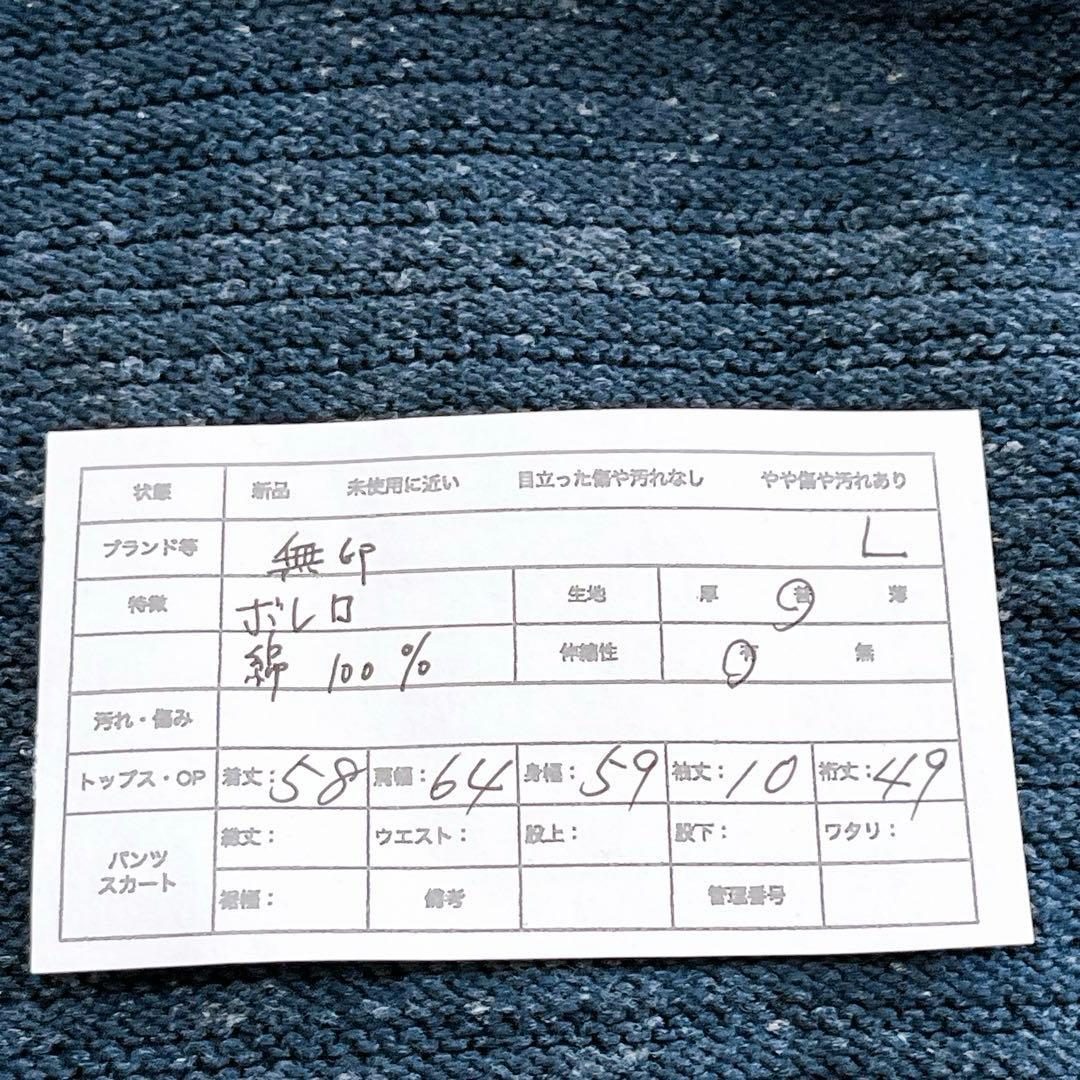 状態 新品 未使用に近い 目立った傷や汚れなし やや傷や汚れあり
ブランド等 無印 L
特徴 ボレロ 生地 厚 普 薄
綿 100% 伸縮性 有 無
汚れ・傷み
トップス・OP 着丈:58 肩幅:64 身幅:59 袖丈:10 裄丈:49
パンツ スカート 総丈: ウエスト: 股上: 股下: ワタリ:
裾幅: 備考 管理番号